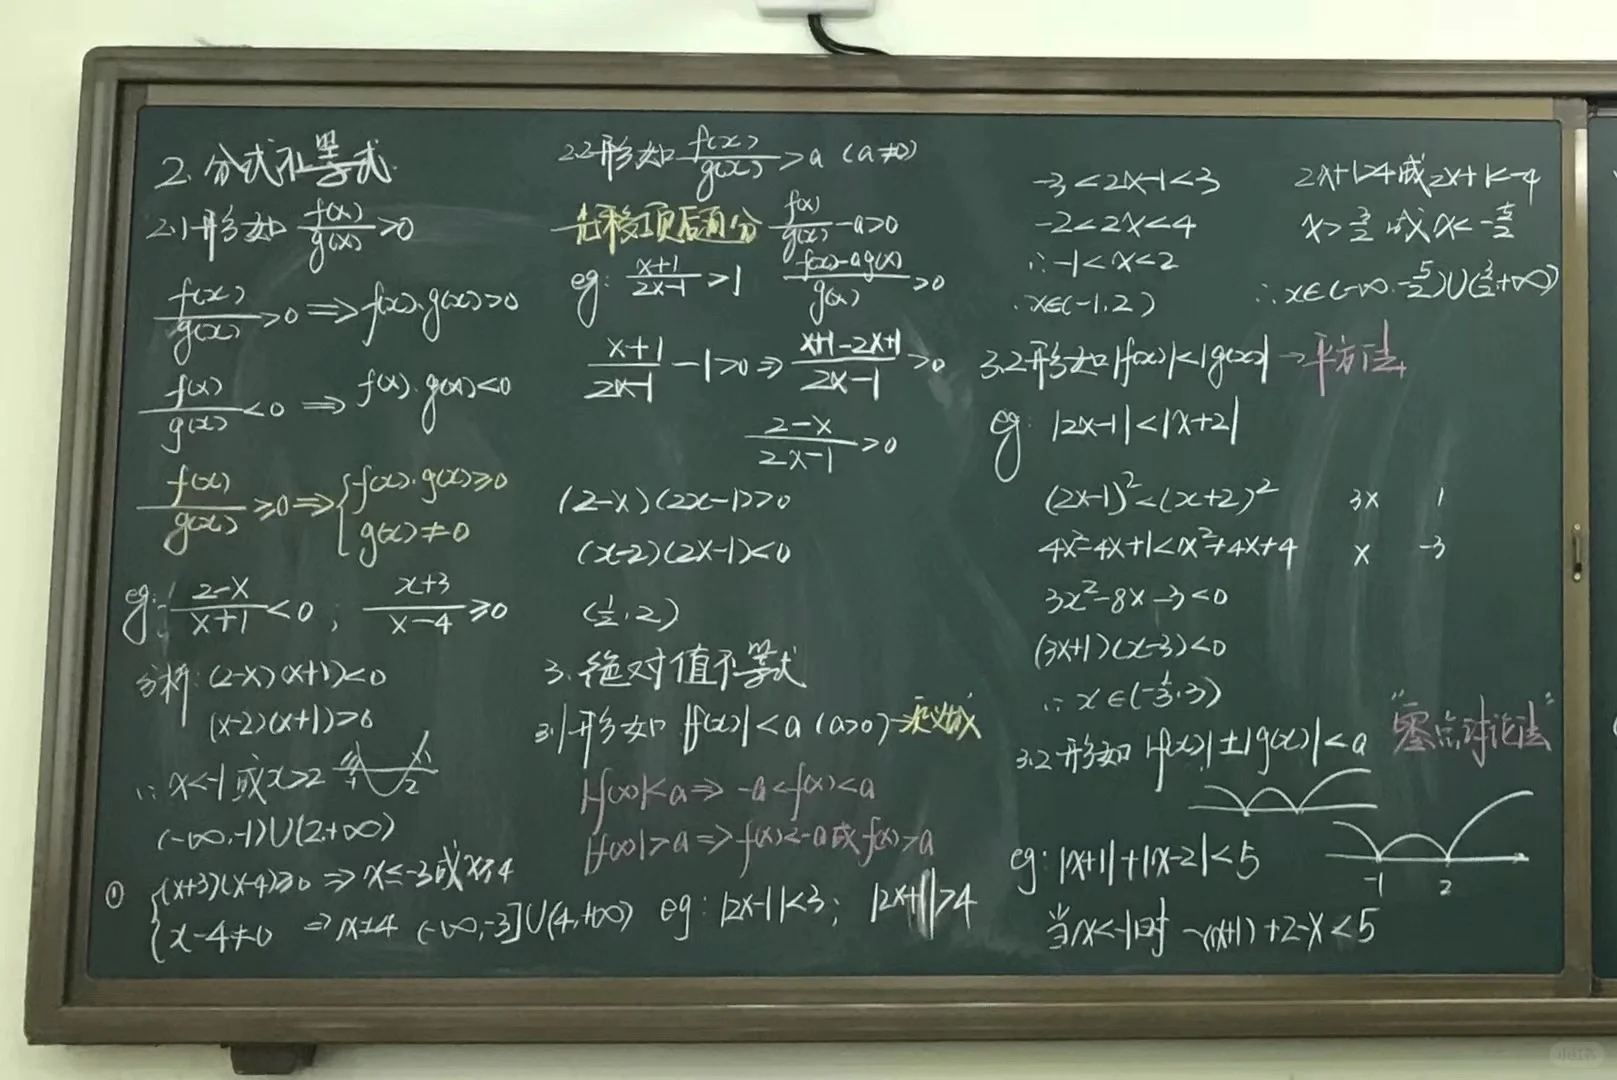 2.分式不等式
2.1形如 f(x)/g(x)>0
f(x)/g(x)>0⇒f(x).g(x)>0
f(x)/g(x)<0⇒f(x).g(x)<0
f(x)/g(x)≥0⇒{f(x).g(x)≥0
g(x)≠0
eg: (2-x)/(x+1)<0; (x+3)/(x-4)≥0
分析:(2-x)(x+1)<0
(x-2)(x+1)>0
∴x<-1或x>2
-1 2
(-∞,-1)∪(2,+∞)
① {(x+3)(x-4)≥0⇒x≤-3或x≥4
x-4≠0⇒x≠4 (-∞,-3]∪(4,+∞)
2.2形如 f(x)/g(x)>a (a≠0)
先移项后通分 f(x)/g(x)-a>0
eg: (x+1)/(2x-1)>1 (f(x)-ag(x))/g(x)>0
(x+1)/(2x-1)-1>0⇒(x+1-2x+1)/(2x-1)>0
(2-x)/(2x-1)>0
(2-x)(2x-1)>0
(x-2)(2x-1)<0
(1/2,2)
3.绝对值不等式
3.1形如|f(x)|<a(a>0)→定义法
|f(x)|<a⇒-a<f(x)<a
|f(x)|>a⇒f(x)<-a或f(x)>a
eg:|2x-1|<3; |2x+1|>4
-3<2x-1<3
-2<2x<4
∴-1<x<2
∴x∈(-1,2)
2x+1>4或2x+1<-4
x>3/2或x<-5/2
∴x∈(-∞,-5/2)∪(3/2,+∞)
3.2形如|f(x)|<|g(x)|→平方法
eg: |2x-1|<|x+2|
(2x-1)²<(x+2)² 3x 1
4x²-4x+1<x²+4x+4 x -3
3x²-8x-3<0
(3x+1)(x-3)<0
∴x∈(-1/3,3)
3.2形如|f(x)|±|g(x)|<a "零点讨论法"
eg:|x+1|+|x-2|<5
-1 2
当x<-1时 -(x+1)+2-x<5
小红书